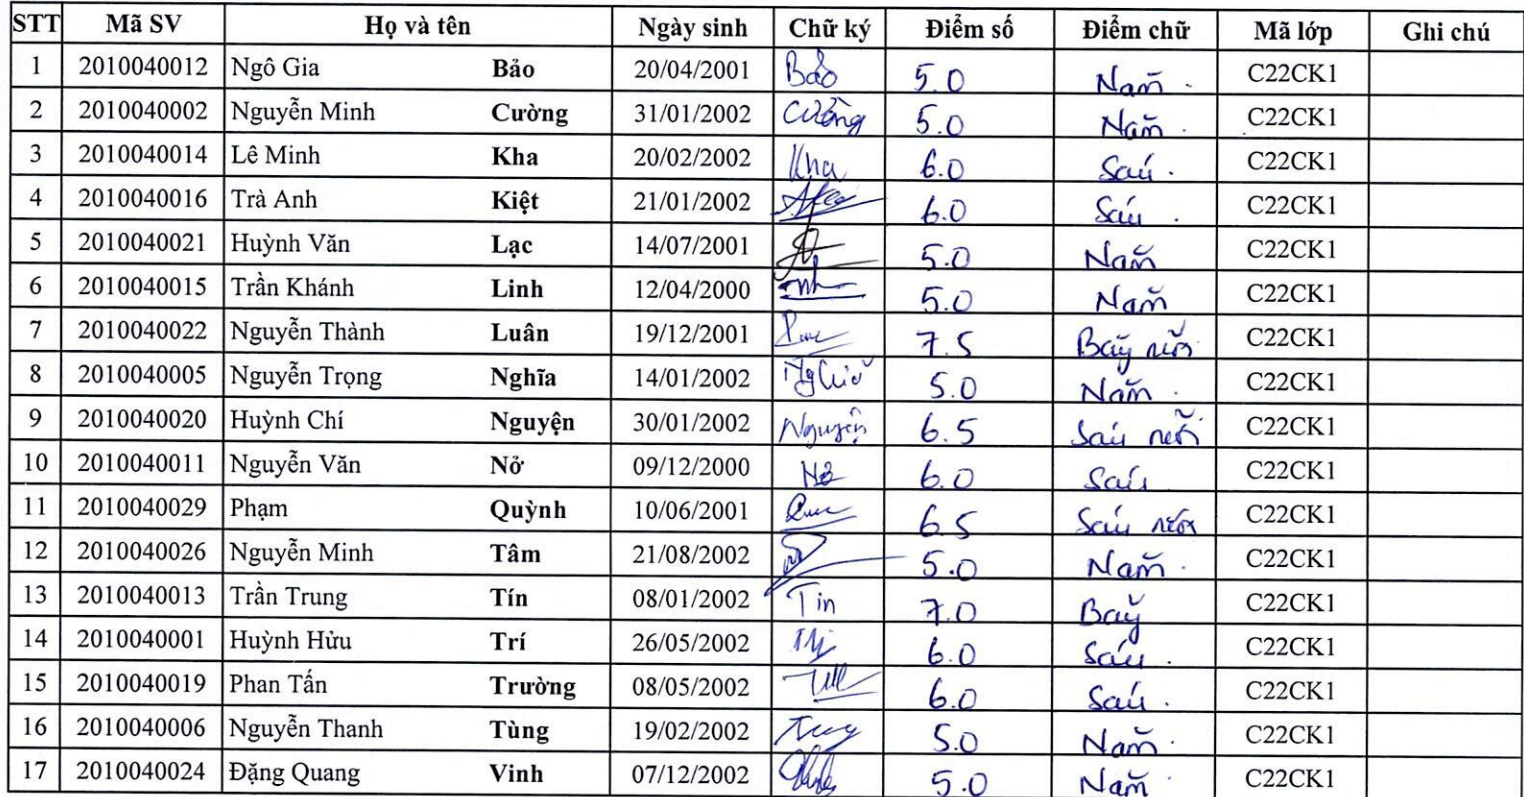 STT Mã SV Họ và tên Ngày sinh Chữ ký Điểm số Điểm chữ Mã lớp Ghi chú
1 2010040012 Ngô Gia Bảo 20/04/2001 Bảo 5.0 Năm . C22CK1
2 2010040002 Nguyễn Minh Cường 31/01/2002 Cường 5.0 Năm . C22CK1
3 2010040014 Lê Minh Kha 20/02/2002 Kha 6.0 Sáu . C22CK1
4 2010040016 Trà Anh Kiệt 21/01/2002 6.0 Sáu . C22CK1
5 2010040021 Huỳnh Văn Lạc 14/07/2001 5.0 Năm C22CK1
6 2010040015 Trần Khánh Linh 12/04/2000 5.0 Năm C22CK1
7 2010040022 Nguyễn Thành Luân 19/12/2001 7.5 Bảy rưỡi C22CK1
8 2010040005 Nguyễn Trọng Nghĩa 14/01/2002 Nghĩa 5.0 Năm . C22CK1
9 2010040020 Huỳnh Chí Nguyện 30/01/2002 Nguyện 6.5 Sáu rưỡi C22CK1
10 2010040011 Nguyễn Văn Nở 09/12/2000 Nở 6.0 Sáu C22CK1
11 2010040029 Phạm Quỳnh 10/06/2001 6.5 Sáu rưỡi C22CK1
12 2010040026 Nguyễn Minh Tâm 21/08/2002 5.0 Năm . C22CK1
13 2010040013 Trần Trung Tín 08/01/2002 Tin 7.0 Bảy C22CK1
14 2010040001 Huỳnh Hửu Trí 26/05/2002 6.0 Sáu . C22CK1
15 2010040019 Phan Tấn Trường 08/05/2002 6.0 Sáu . C22CK1
16 2010040006 Nguyễn Thanh Tùng 19/02/2002 5.0 Năm . C22CK1
17 2010040024 Đặng Quang Vinh 07/12/2002 5.0 Năm . C22CK1